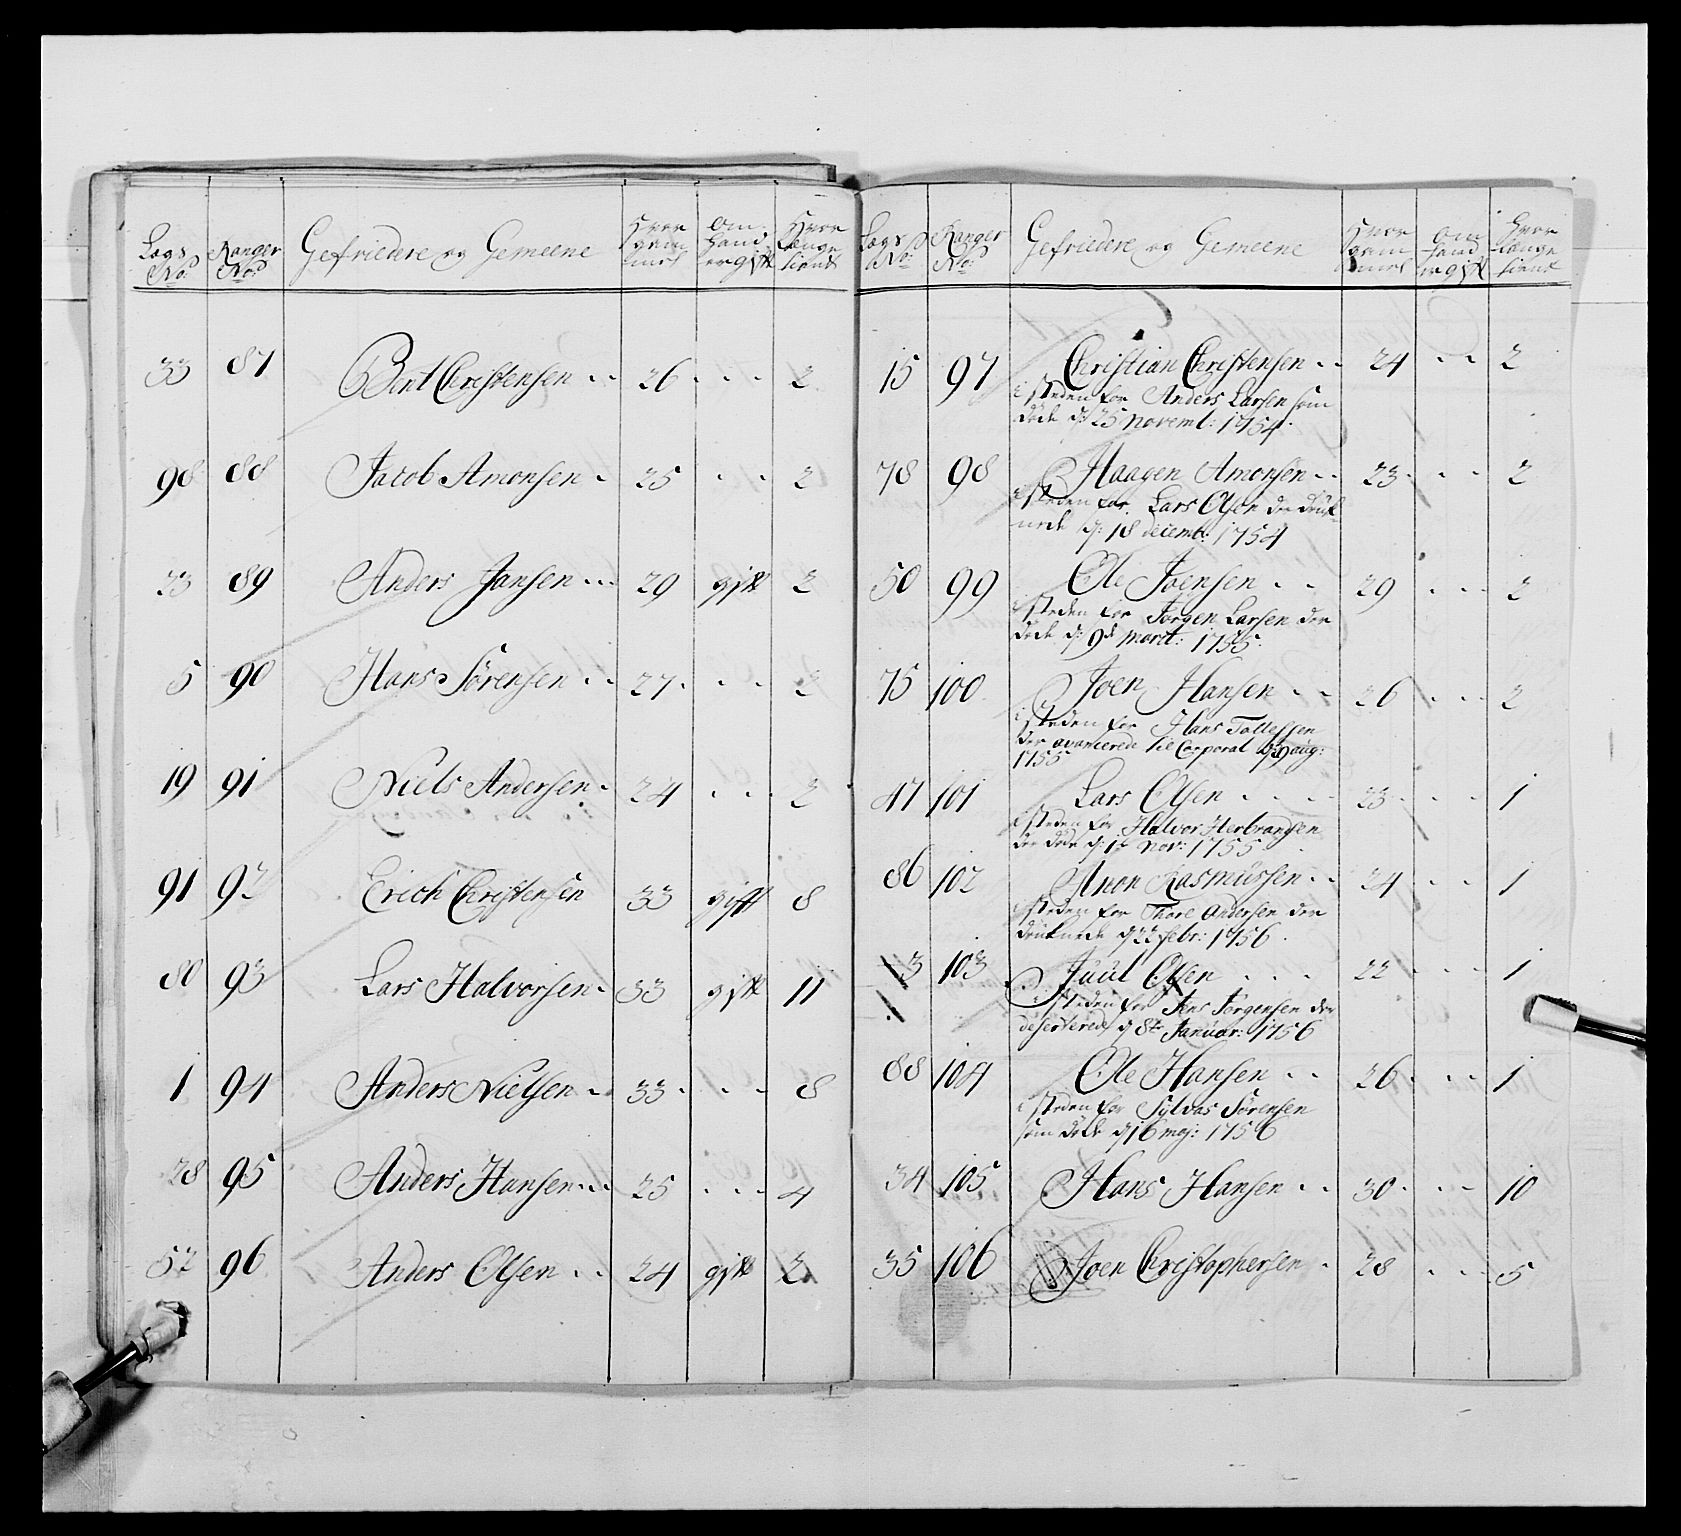 Lægs No: Ranger No: Gefriedere og Gemeene Hvor gam̄el Om hand er gift Hvor længe tient
33 87 Bent Christensen 26 2
98 88 Jacob Amonsen 25 2
23 89 Anders Jansen 29 gift 2
5 90 Hans Sörensen 27 2
19 91 Niels Andersen 24 2
91 92 Erich Christensen 33 gift 8
80 93 Lars Halvorsen 33 gift 11
1 94 Anders Nielsen 33 8
28 95 Anders Hansen 25 4
52 96 Anders Olsen 24 gift 2
Lægs No: Ranger No: Gefriedere og Gemeene Hvor Om hand er gift Hvor længe tient
15 97 Christian Christensen 24 2
i steden for Anders Larsen som
döde d: 25 Novemb: 1754.
78 98 Haagen Amonsen 23 2
i steden for Lars Olsen der druk-
nede d: 18 Decemb: 1754
50 99 Ole Joensen 29 2
i steden for Jörgen Larsen der
döde d: 9de Marti: 1755.
75 100 Joen Hansen 26 2
i steden for Hans Tollefsen
der avancerede til Corporal d: 29 aug:
1755
47 101 Lars Olsen 23 1
i steden for Halvor Herbransen
der döde d: Nov: 1755
86 102 Anon Rasmussen 24 1
i steden for Thore Andersen der
druknede d 22 febr: 1756.
3 103 Juul Olsen 22 1
i steden for Jens Jörgensen der
deserterede d 8de Januar: 1756
88 104 Ole Hansen 26 1
i steden for Sylvas Sörensen
som döde d 16 maj: 1756
34 105 Hans Hansen 30 10
35 106 Joen Christophersen 28 5